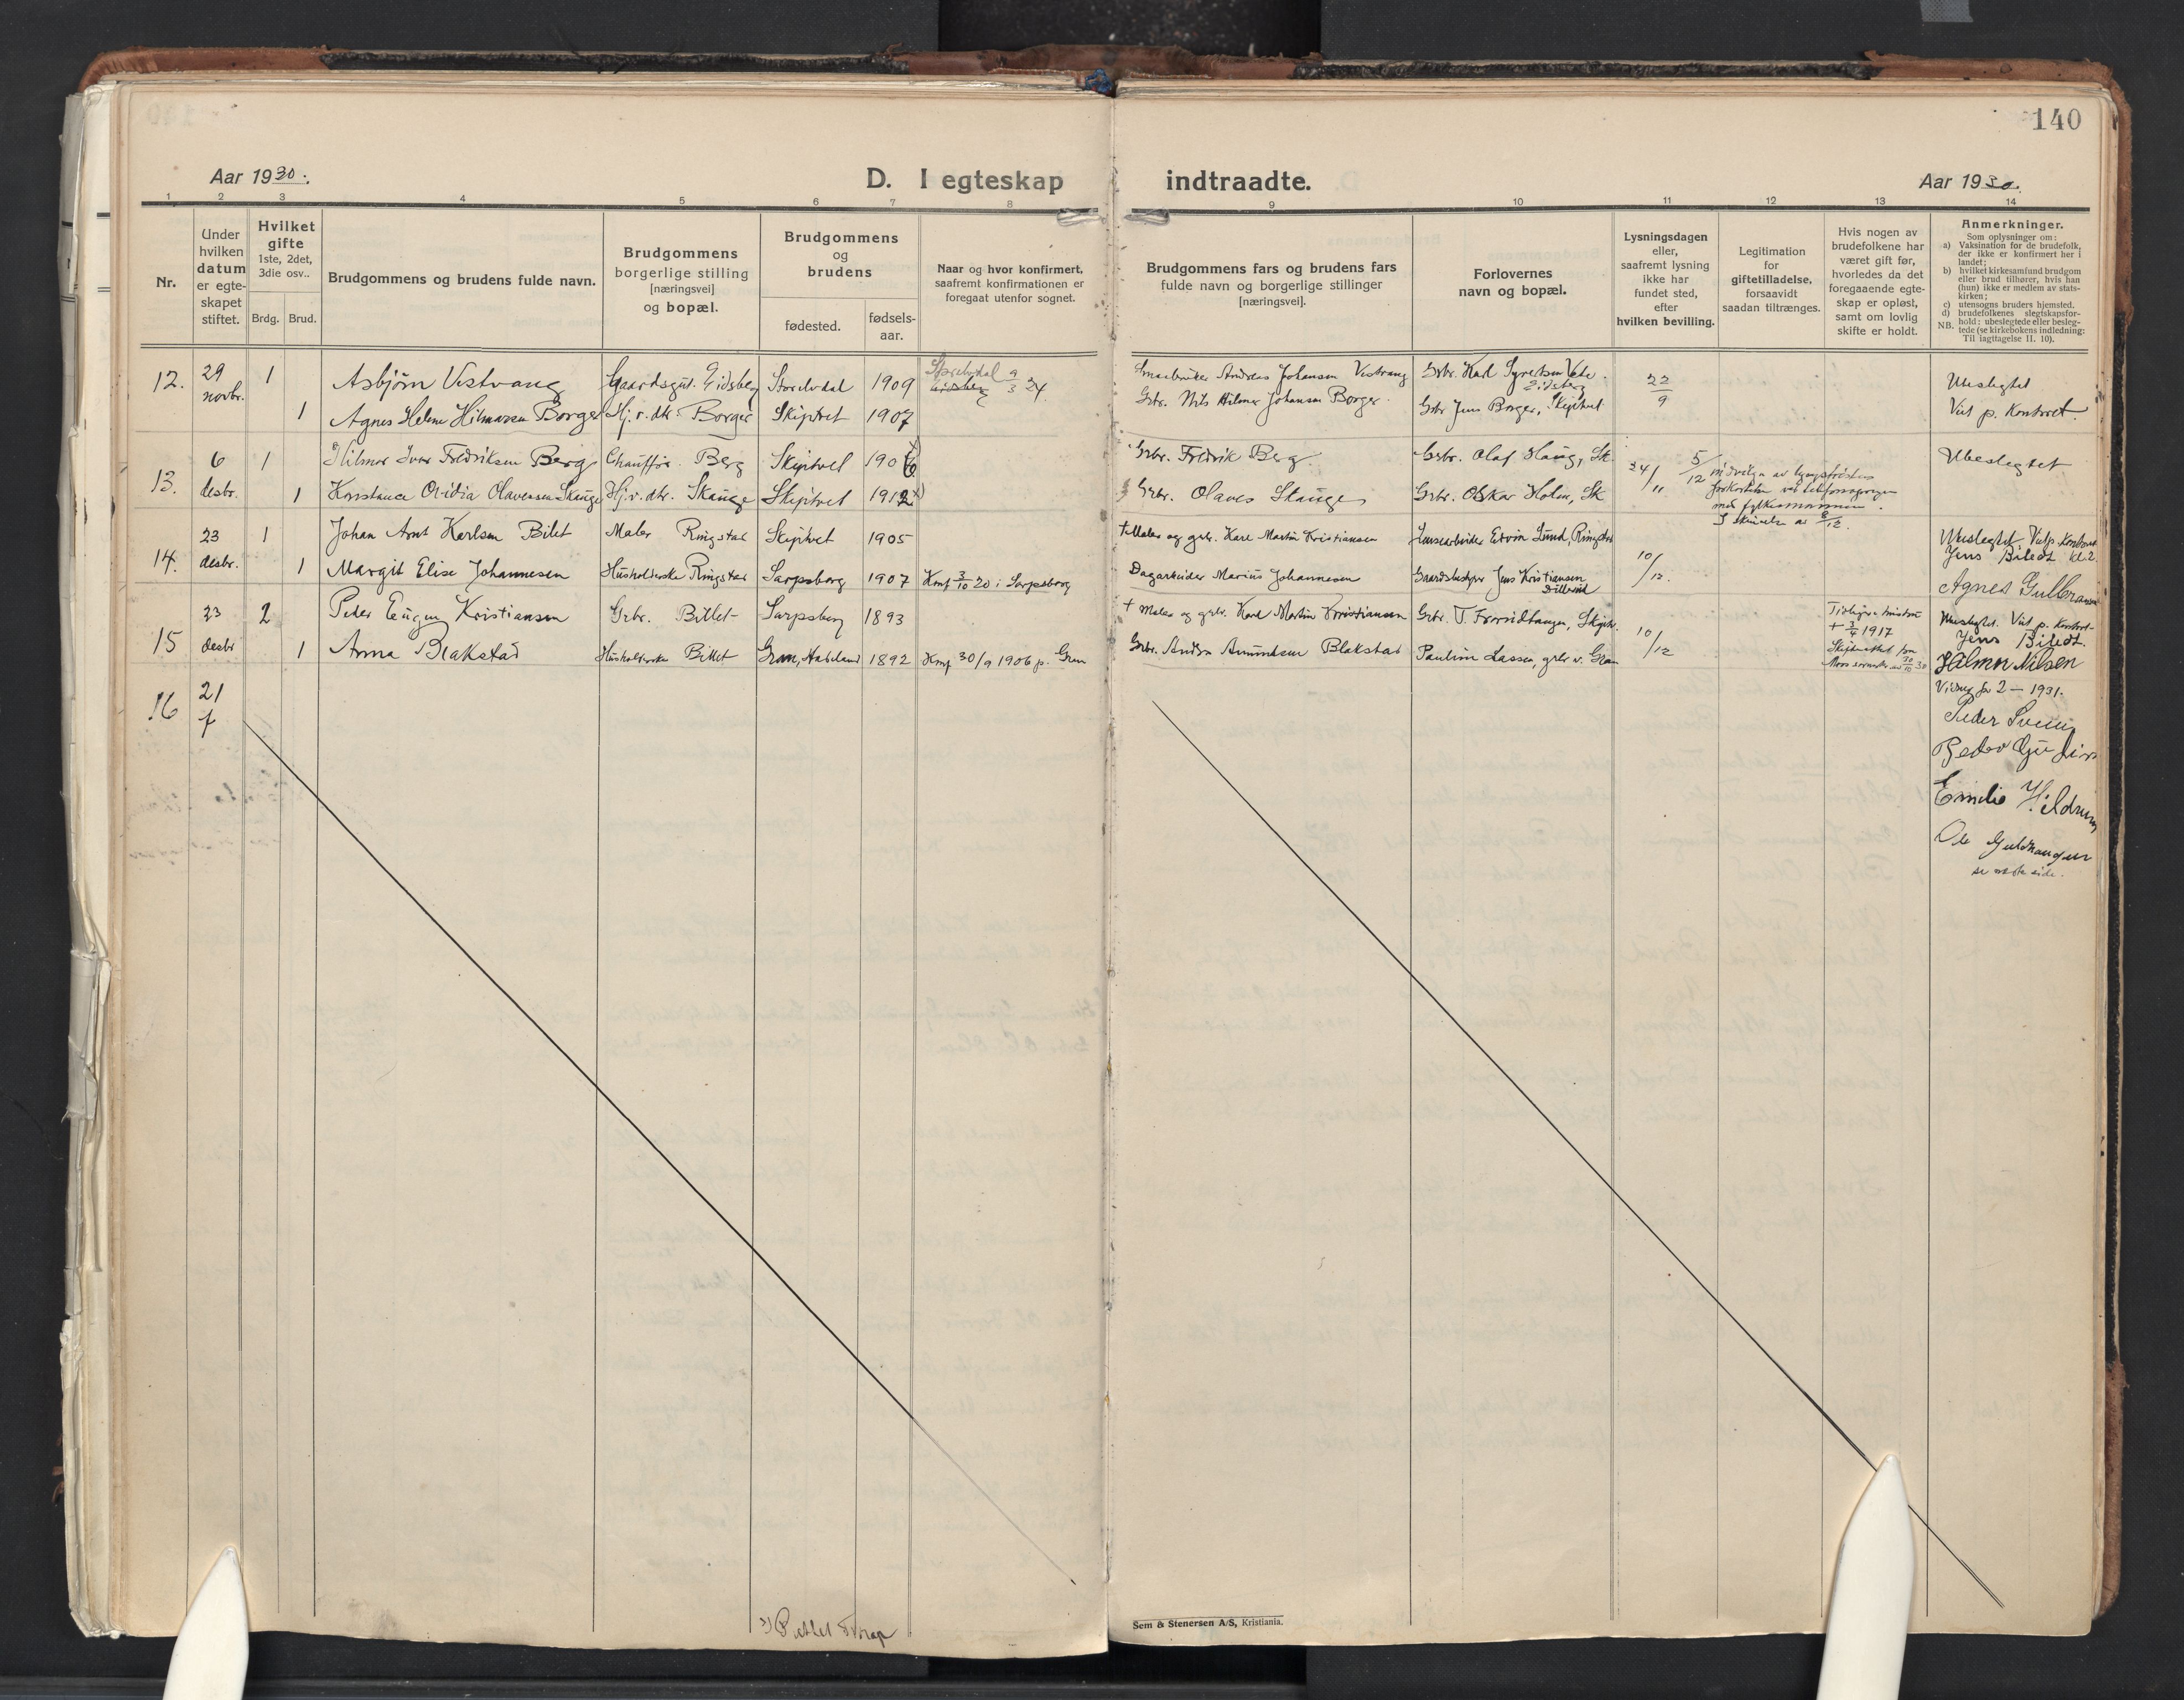 140
Aar 1930.
D. I egteskap
indtraadte.
Aar 1930.
1 2 3 4 5 6 7 8 9 10 11 12 13 14
Nr.
Under hvilken datum er egteskapet stiftet.
Hvilket gifte 1ste, 2det, 3die osv..
Brdg. Brud.
Brudgommens og brudens fulde navn.
Brudgommens borgerlige stilling [næringsvei] og bopæl.
Brudgommens og brudens
fødested.
fødsels-aar.
Naar og hvor konfirmert, saafremt konfirmationen er foregaat utenfor sognet.
Brudgommens fars og brudens fars fulde navn og borgerlige stillinger [næringsvei].
Forlovernes navn og bopæl.
Lysningsdagen eller, saafremt lysning ikke har fundet sted, efter hvilken bevilling.
Legitimation for giftetilladelse, forsaavidt saadan tiltrænges.
Hvis nogen av brudefolkene har været gift før, hvorledes da det foregaaende egteskap er opløst, samt om lovlig skifte er holdt.
Anmerkninger.
Som oplysninger om:
a) Vaksination for de brudefolk, der ikke er konfirmert her i landet;
b) hvilket kirkesamfund brudgom eller brud tilhører, hvis han (hun) ikke er medlem av statskirken;
c) utensogns bruders hjemsted.
d) brudefolkenes slegtskapsforhold: ubeslegtede eller beslegtede (se kirkebokens indledning: Til iagttagelse II. 10).
NB.
12. 29 novbr. 1 Asbjörn Vestvang Gaardsgut. Eidsberg Storelvdal 1909 Storelvdal Eidsberg 9/3 24 Smaabruker Andreas Johansen Vestvang Grbr. Karl Syvertsen Eidsberg 22/9 Ubeslegtet
1 Agnes Helene Hilmarsen Borger Hj.v. dtr. Borger Skiptvet 1907 Grbr. Nils Hilmar Johansen Borger. Grbr Jens Borger, Skiptvet Viet p. Kontoret.
13. 6 desbr. 1 Hilmar Ivar Fredriksen Berg Chauffør. Berg Skiptvet 1906 Grbr. Fredrik Berg Grbr. Olaf Haug, Sk. 24/11 5/12 Ubeslegtet
1 Konstance Ovidia Olavesen Skauge Hj.v. dtr. Skauge Skiptvet 1912 Grbr. Olaves Skauge Grbr. Oskar Holm, Sk
14. 23 desbr. 1 Johan Arnt Karlsen Bilet Maler Ringstad Skiptvet 1905 † Maler og grbr. Karl Martin Kristiansen Edvin Lund, Ringstad 10/12. Ubeslegtet Viet p. Kontoret kl. 2.
Jens Biledt
1 Margit Elise Johannesen Husholderske Ringstad Sarpsborg 1907 Konf 3/10 20 i Sarpsborg Dagarbeider Marius Johannesen Gaardsbestyrer Jens Kristiansen
Agnes Gulbransen
15 23 desbr 2 Peder Eugen Kristiansen Grbr. Billet Sarpsborg 1893 † Maler og grbr. Karl Martin Kristiansen Grbr. T. Skiptv. 10/12 † 3/4 1917 Ubeslegtet. Viet p. Kontoret
Jens Biledt.
1 Anna Blakstad Husholderske Billet Gran, Hadeland 1892 Konf 30/9 1906 p. Gran Grbr. Andr. Amundsen Blakstad Pauline Lassen, Gran
Halmar Nilsen
16 21
1931.
Emilie Hildrum
se næste side.
Sem & Stenersen A/S, Kristiania.